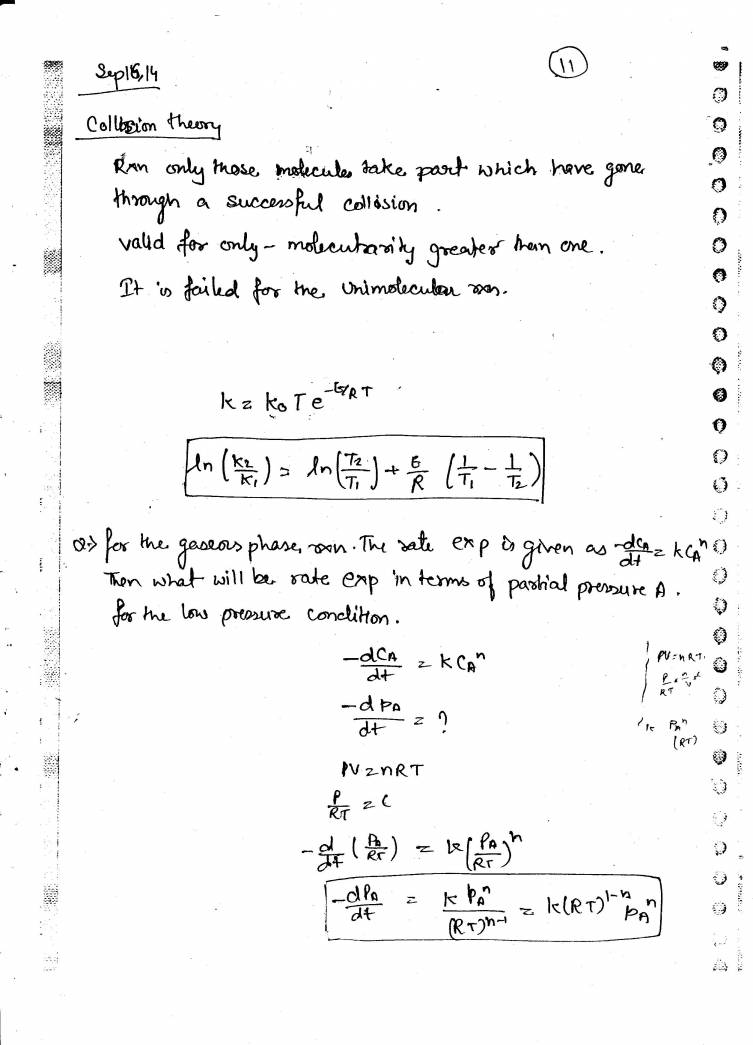 Sep 16, 14
11
Collision theory
Rxn only those molecules take part which have gone
through a successful collision.
valid for only - molecularity greater than one.
It is failed for the unimolecular rxn.
k = k₀ T e^(-E/RT)
ln (K₂/K₁) = ln (T₂/T₁) + E/R (1/T₁ - 1/T₂)
Q⇒ for the gaseous phase, rxn. The rate exp is given as -dCA/dt = k CAⁿ
Then what will be rate exp in terms of partial pressure A.
for the low pressure condition.
-dCA/dt = k CAⁿ
PV = nRT.
-dPA/dt = ?
PAⁿ
(RT)
PV = nRT
P/RT = C
-d/dt (PA/RT) = k (PA/RT)ⁿ
-dPA/dt = k PAⁿ/(RT)ⁿ⁻¹ = k(RT)¹⁻ⁿ PAⁿ